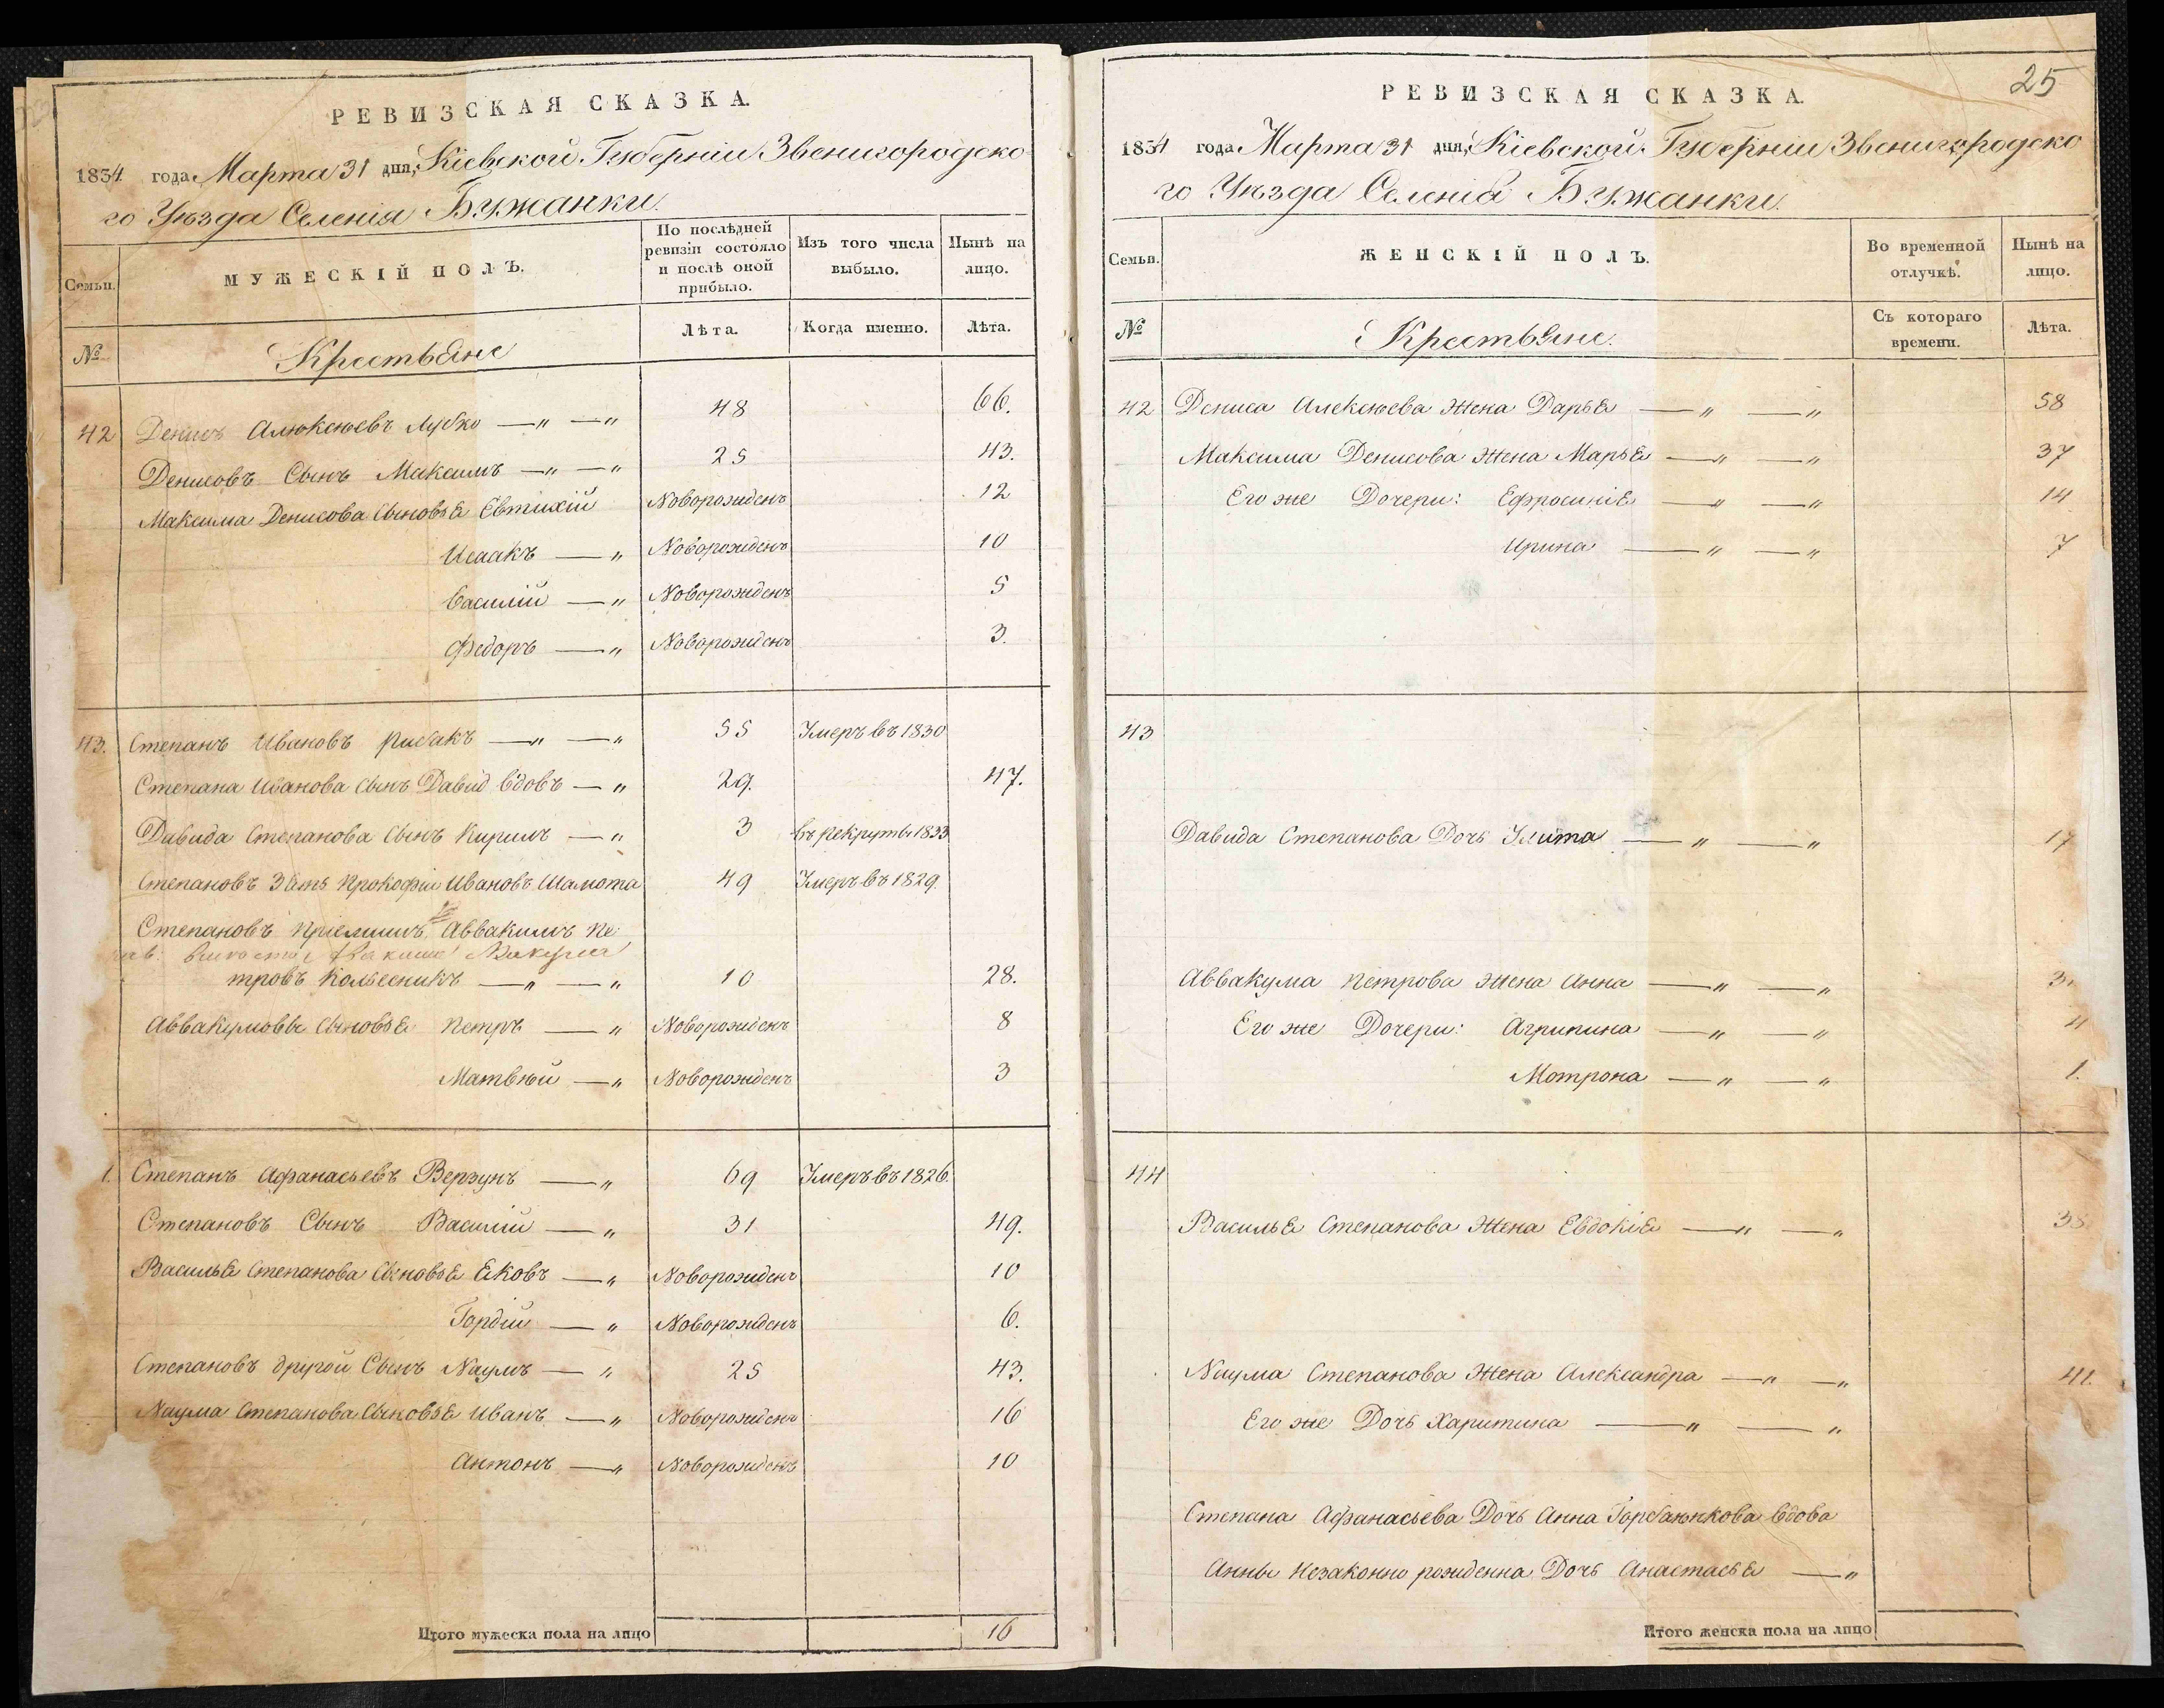 РЕВИЗСКАЯ СКАЗКА.
1834 года Марта 31 дня, Кіевской Губерніи Звенигородско
го Уѣзда Селенія Бужанки.
Семьи.
МУЖЕСКІЙ ПОЛЪ.
По послѣдней ревизіи состояло и послѣ оной прибыло.
Изъ того числа выбыло.
Нынѣ на лицо.
№
Крестьяне
Лѣта.
Когда именно.
Лѣта.
42 Денисъ Алексѣевъ Лубко — „ — „ 48 66.
Денисовъ Сынъ Максимъ — „ — „ 25 43.
Максима Денисова Сыновья Евтихій Новорожденъ 12
Исаакъ — „ Новорожденъ 10
Василій — „ Новорожденъ 5
Федоръ — „ Новорожденъ 3.
43. Степанъ Ивановъ Рибакъ — „ — „ 55 Умеръ въ 1830
Степана Иванова Сынъ Давид вдовъ — „ 29. 47.
Давида Степанова Сынъ Кирилъ — „ 3 въ рекруты 1833
Степановъ Зать Прокофій Ивановъ Шамота 49 Умеръ въ 1829.
Степановъ Пріемишъ Аввакимъ Пе
Вакума
тровъ Колѣсникъ — „ — „ 10 28.
Аввакумовы Сыновья Петръ — „ Новорожденъ 8
Матвѣй — „ Новорожденъ 3
Степанъ Афанасьевъ Верзунъ — „ 69 Умеръ въ 1826.
Степановъ Сынъ Василій — „ 31 49.
Василья Степанова Сыновья Яковъ — „ Новорожденъ 10
Гордій — „ Новорожденъ 6.
Степановъ другой Сынъ Наумъ — „ 25 43.
Наума Степанова Сыновья Иванъ — „ Новорожденъ 16
Антонъ — „ Новорожденъ 10
Итого мужеска пола на лицо 16
25
РЕВИЗСКАЯ СКАЗКА.
1834 года Марта 31 дня, Кіевской Губерніи Звенигородско
го Уѣзда Селенія Бужанки.
Семьи.
ЖЕНСКІЙ ПОЛЪ.
Во временной отлучкѣ.
Нынѣ на лицо.
№
Крестьяне.
Съ котораго времени.
Лѣта.
42 Дениса Алексѣева Жена Дарья — „ — „ 58
Максима Денисова Жена Марья — „ — „ 37
Его же Дочери: Ефросинія — „ — „ 14
Ирина — „ — „ 7
43
Давида Степанова Дочь — „ — „ 17
Аввакума Петрова Жена Анна — „ — „
Его же Дочери: Агрипина — „ — „ 4
Мотрона — „ — „ 1.
44
Василья Степанова Жена Евдокія — „ — „ 38
Наума Степанова Жена Александра — „ — „ 41.
Его же Дочь Харитина — „ — „
Степана Афанасьева Дочь Анна Горбанюкова вдова
Анны Незаконно рожденна Дочь Анастасья — „
Итого женска пола на лицо